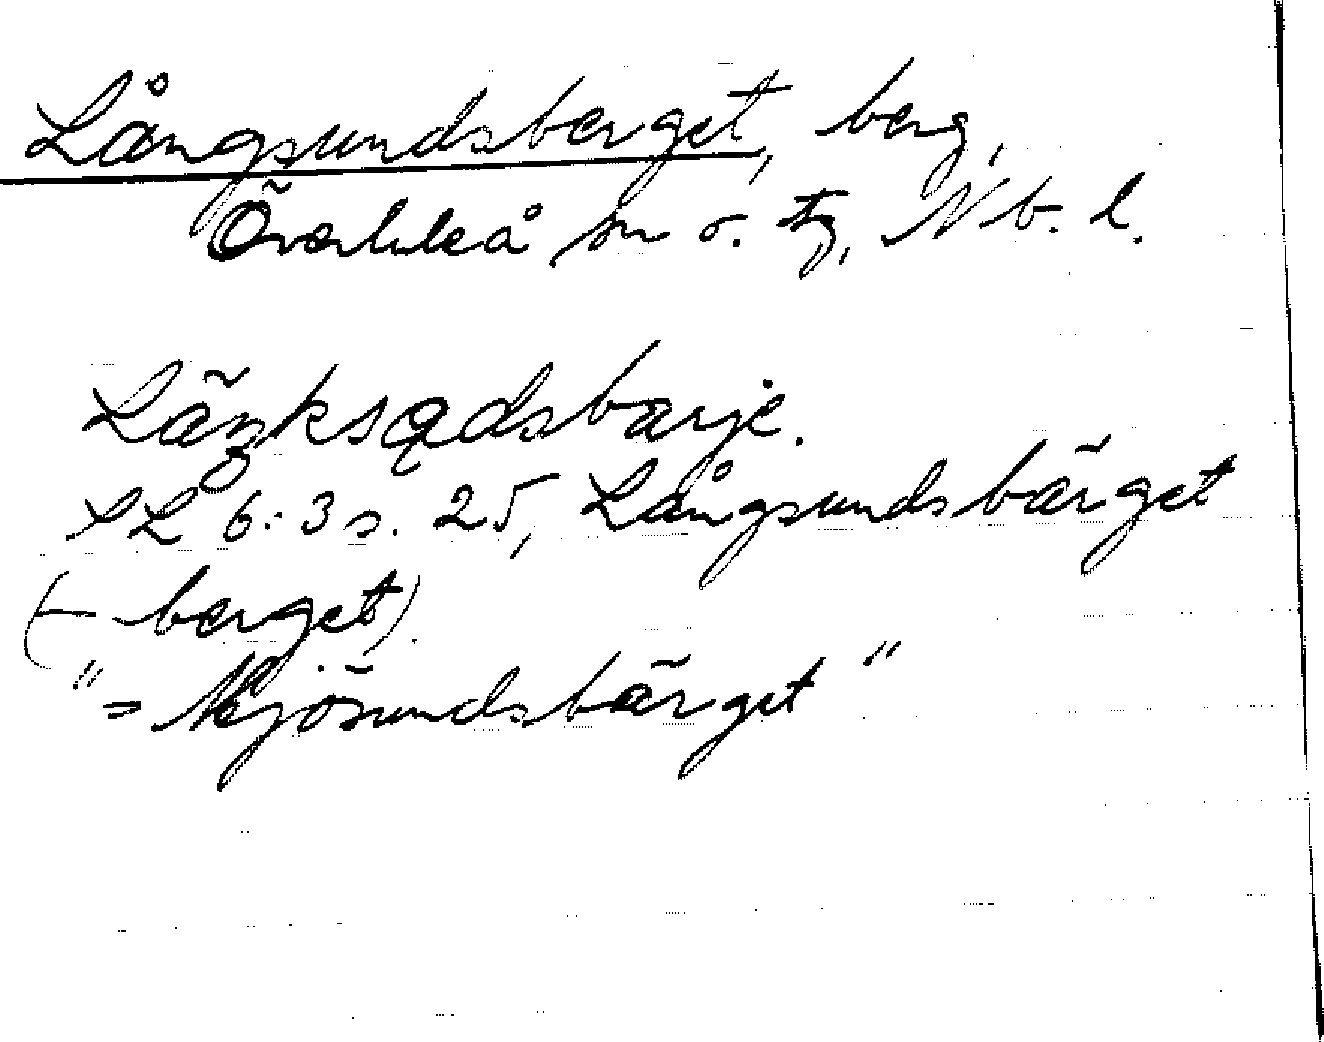 Långsundsberget, berg,
Överluleå sn o. tg, Nb. l.
Läŋksǫdsbarje.
SL 6:3 s. 25, Långsundsbärget
(-berget).
"= Mjösundsbärget"